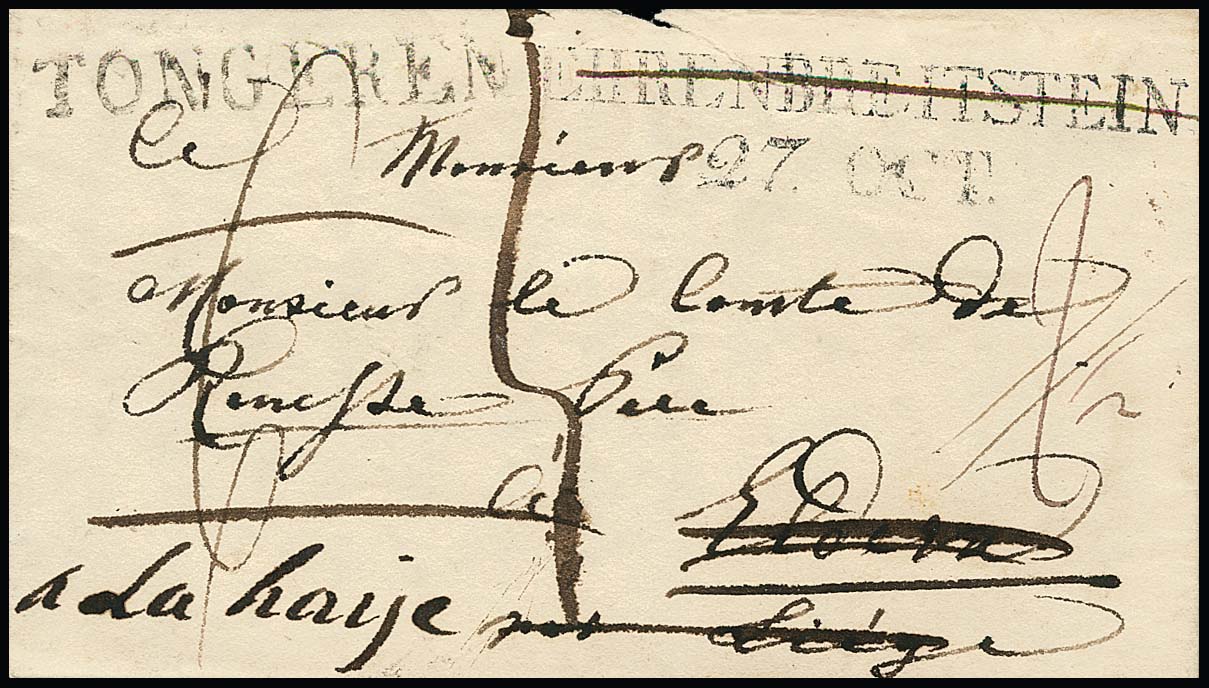 TONGEREN EHRENBREITSTEIN
27. OCT.
Monsieur
Monsieur le Comte de
Renesse
à
a La haije
Liége